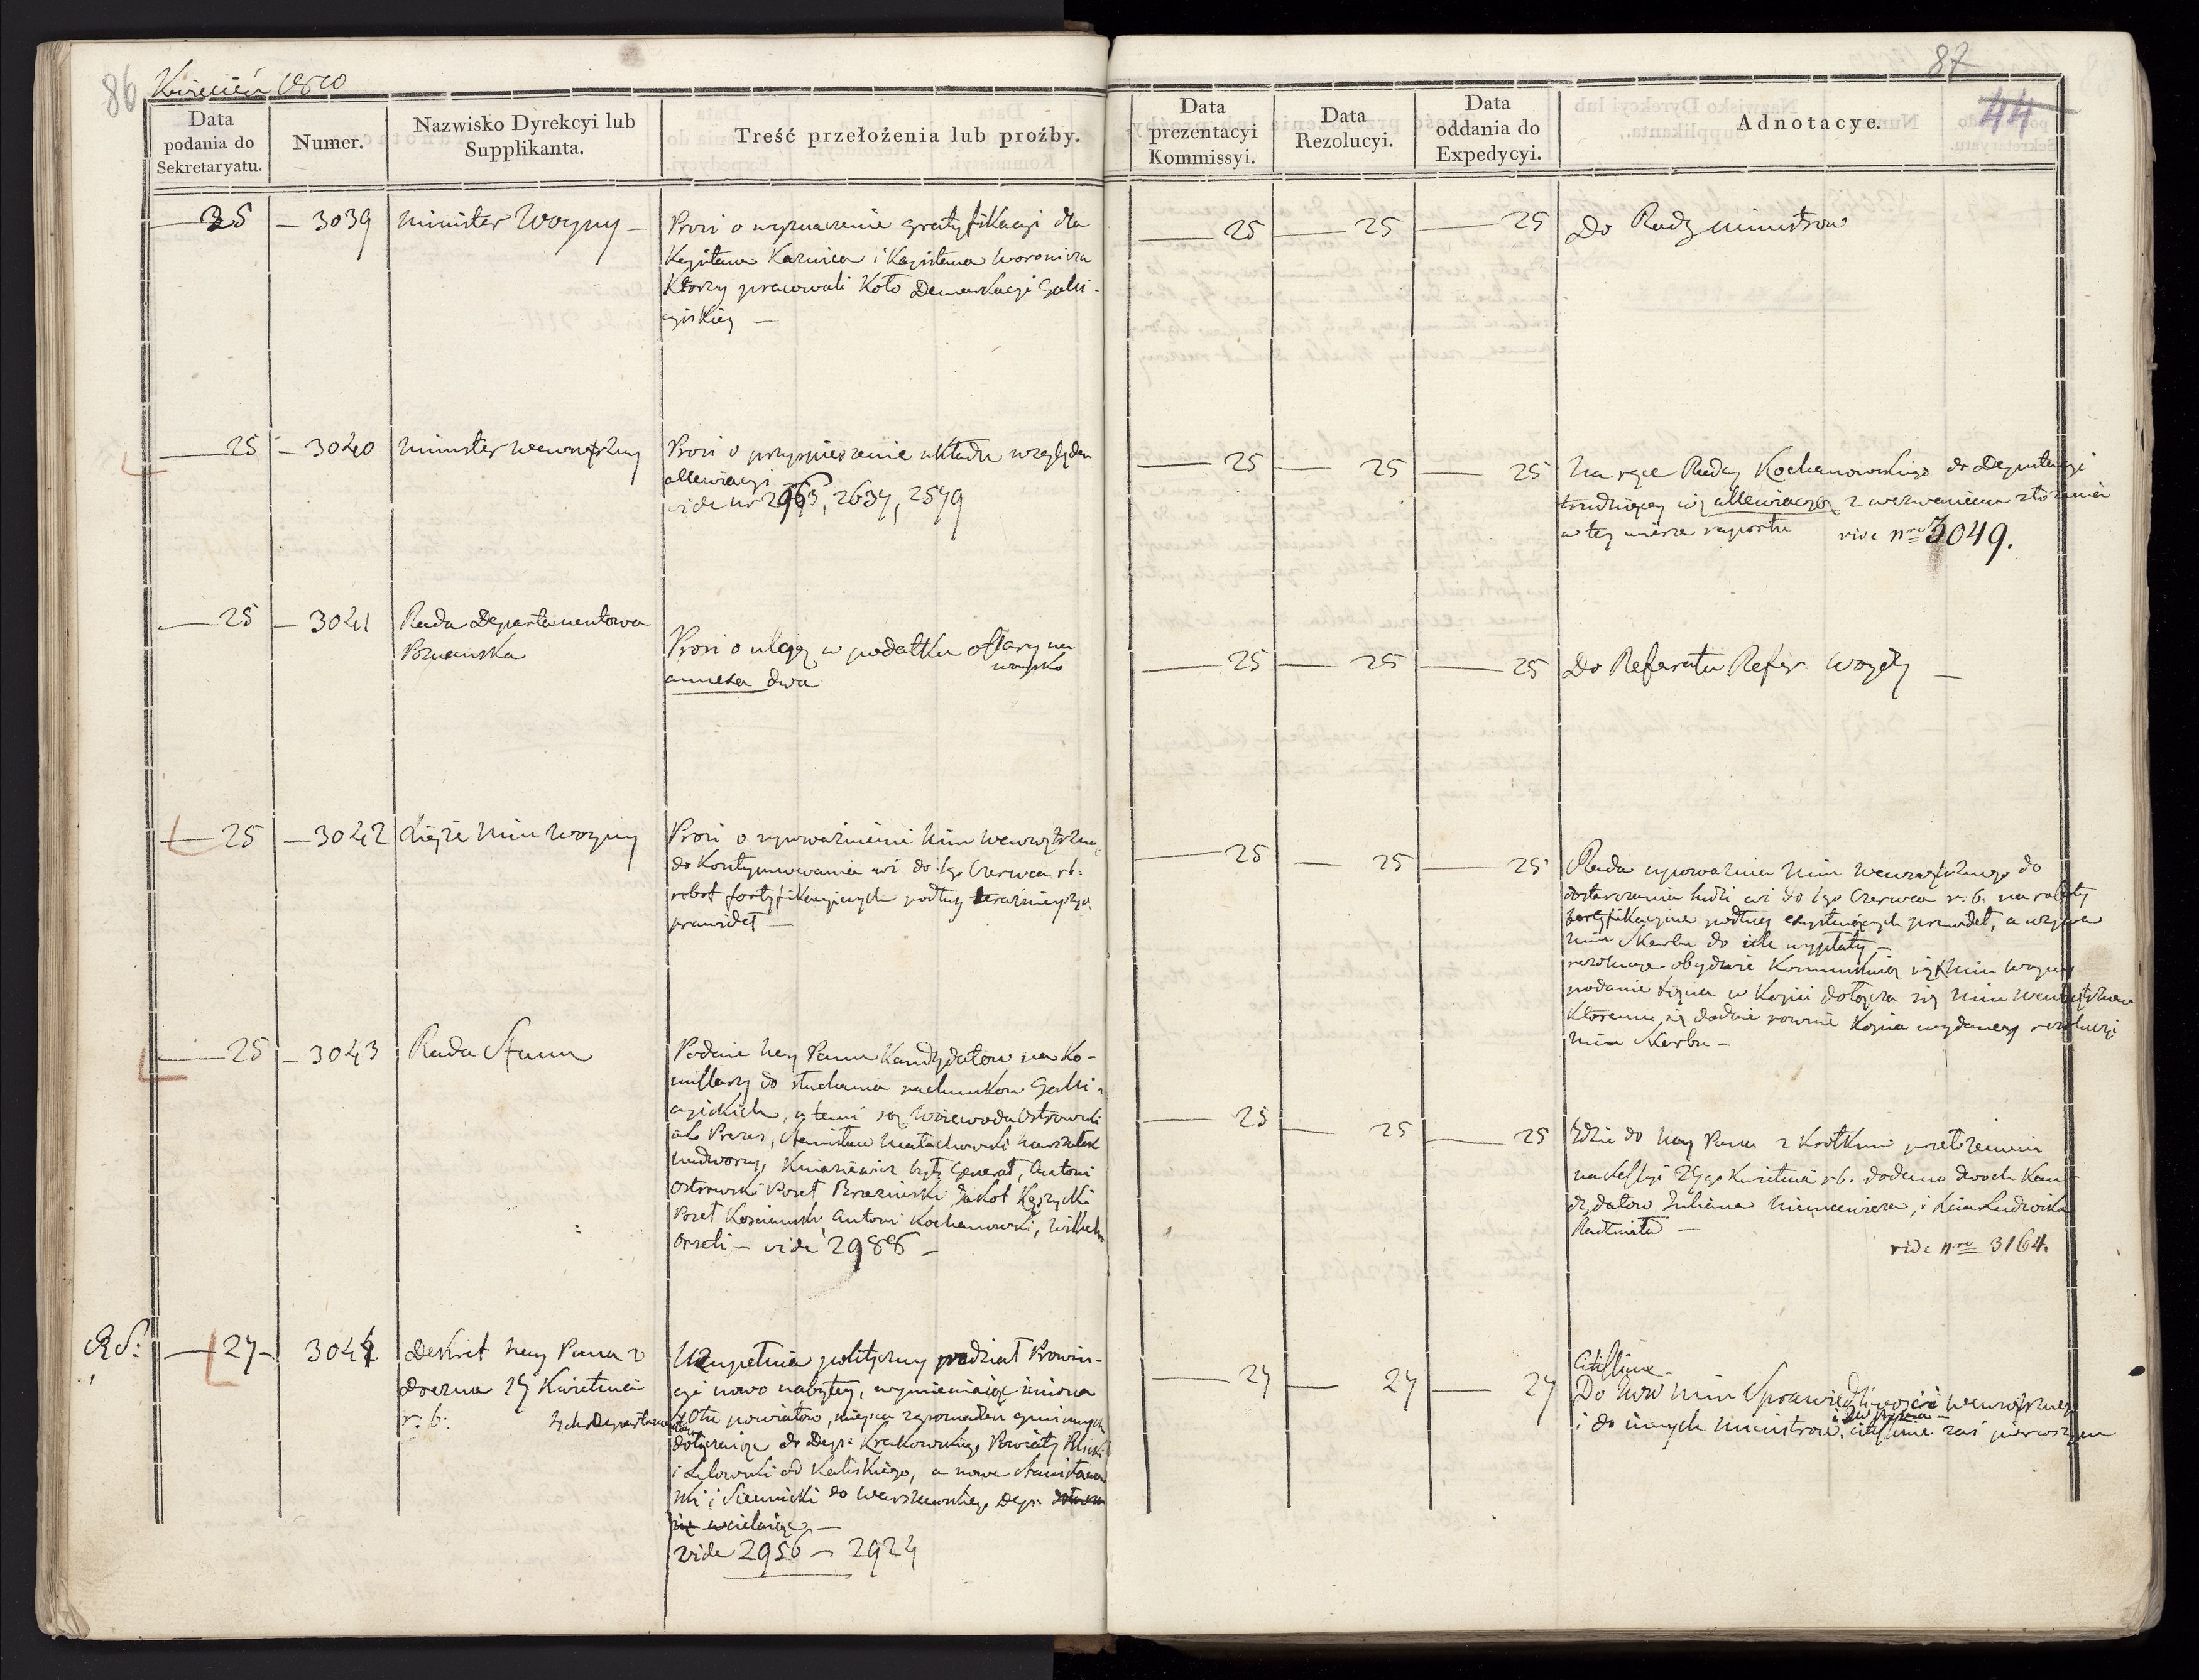 86
Kwiecień 1810
Data
podania do
Sekretaryatu.
Numer.
Nazwisko Dyrekcyi lub
Supplikanta.
Treść przełożenia lub proźby.
25 — 3039
Minister Woyny —
Prosi o wyznaczenie gratyfikacyi dla
Kapitana i Kapitana Woronicza
Którzy pracowali Koło Demarkacyi Galli-
cyiskiey —
25 — 3040
Minister Wewnętrzny
Prosi o przyspieszenie układu względem
allewiacyi
vide nr 2963, 2637, 2579
25 — 3041
Rada Departamentowa
Poznańska
Prosi o ulgę w podatku ofiary na
woysko
annexa dwa
25 — 3042
Xiąże Min Woyny
Prosi o upoważnienie Min Wewnętrzne
do Kontynuowania aż do 1go Czerwca rb:
robot fortyfikacyinych podług teraźnieyszych
prawideł —
25 — 3043
Rada Stanu
Podaie Nay Panu Kandydatow na Ko-
missarzy do słuchania rachunkow Galli-
cyiskich, a temi są Woiewoda Ostrowski
iako Prezes, Stanisław Małachowski Marszałek
Nadworny, Kniaziewicz były Generał, Antoni
Ostrowski Poseł Brzezinski Jakob Kęszycki
Poseł Kościański Antoni Kochanowski, Wilhelm
Orsetti — vide 2988 —
27 — 3044
Dekret Nay Pana z
Drezna 24 Kwietnia
r. b:
Uzupełnia polityczny podział Prowin-
cyi nowo nabytey, wymieniaiąc imiona
40tu powiatow, mieysca zgromadzeń gminnych
dołączaiąc do Dep: Krakowskiego Powiaty Pilicki
i Lelowski od Kaliskiego, a nowe Stanisławow
ski i Siennicki do Warszawskiego Dep.
się wcielaiąc —
vide 2956 — 2924
87
44
Data
prezentacyi
Kommissyi.
Data
Rezolucyi.
Data
oddania do
Expedycyi.
Adnotacye.
25 — 25 — 25
Do Rady Ministrow
25 — 25 — 25
Na ręce Radcy Kochanowskiego do Deputacyi
trudniącey się allewiacyą z wezwaniem złożenia
w tey mierze raportu vide nro 3049.
25 — 25 — 25
Do Referatu Refer. Woydy —
25 — 25 — 25
Rada upoważnia Min Wewnętrznego do
dostarczania ludzi aż do 1go Czerwca r. b. na roboty
fortyfikacyine podług exystuiących prawideł, a wzywa
Min Skarbu do ich wypłaty —
rezolucye obydwie Kommunikuią się Min Woyny
podanie Xięcia w Kopii dołącza się Min Wewnętrznemu
Któremu się dodaie rownie Kopia wydaney rezolucyi
Min Skarbu —
25 — 25 — 25
Idzie do Nay Pana z Krotkim przełożeniem
na Sessyi 24go Kwietnia rb. dodano dwoch Kan
dydatow Juliana Niemcewicza, i Xcia Ludwika
Radziwiłła —
vide nro 3164.
27 — 27 — 27
Citissime
Do Min Sprawiedliwości Wewnętrznego
i do innych Ministrow, citissime zaś pierwszym